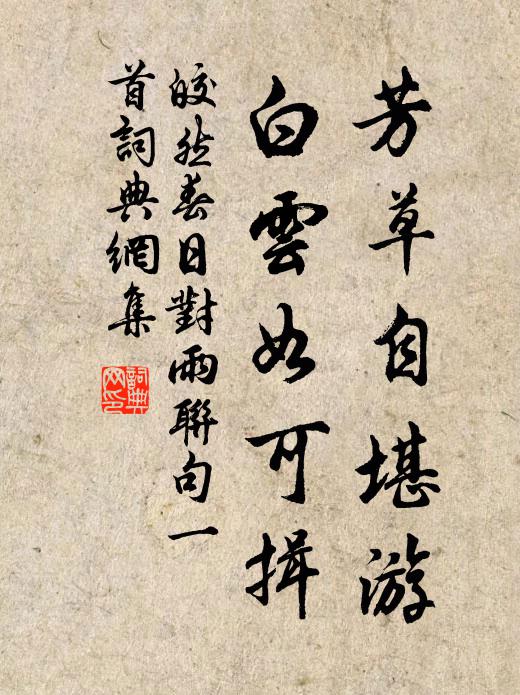 芳草自堪游
白雲如可揖
皎然春日對雨聯句一
首詞典網集
詞典
网印